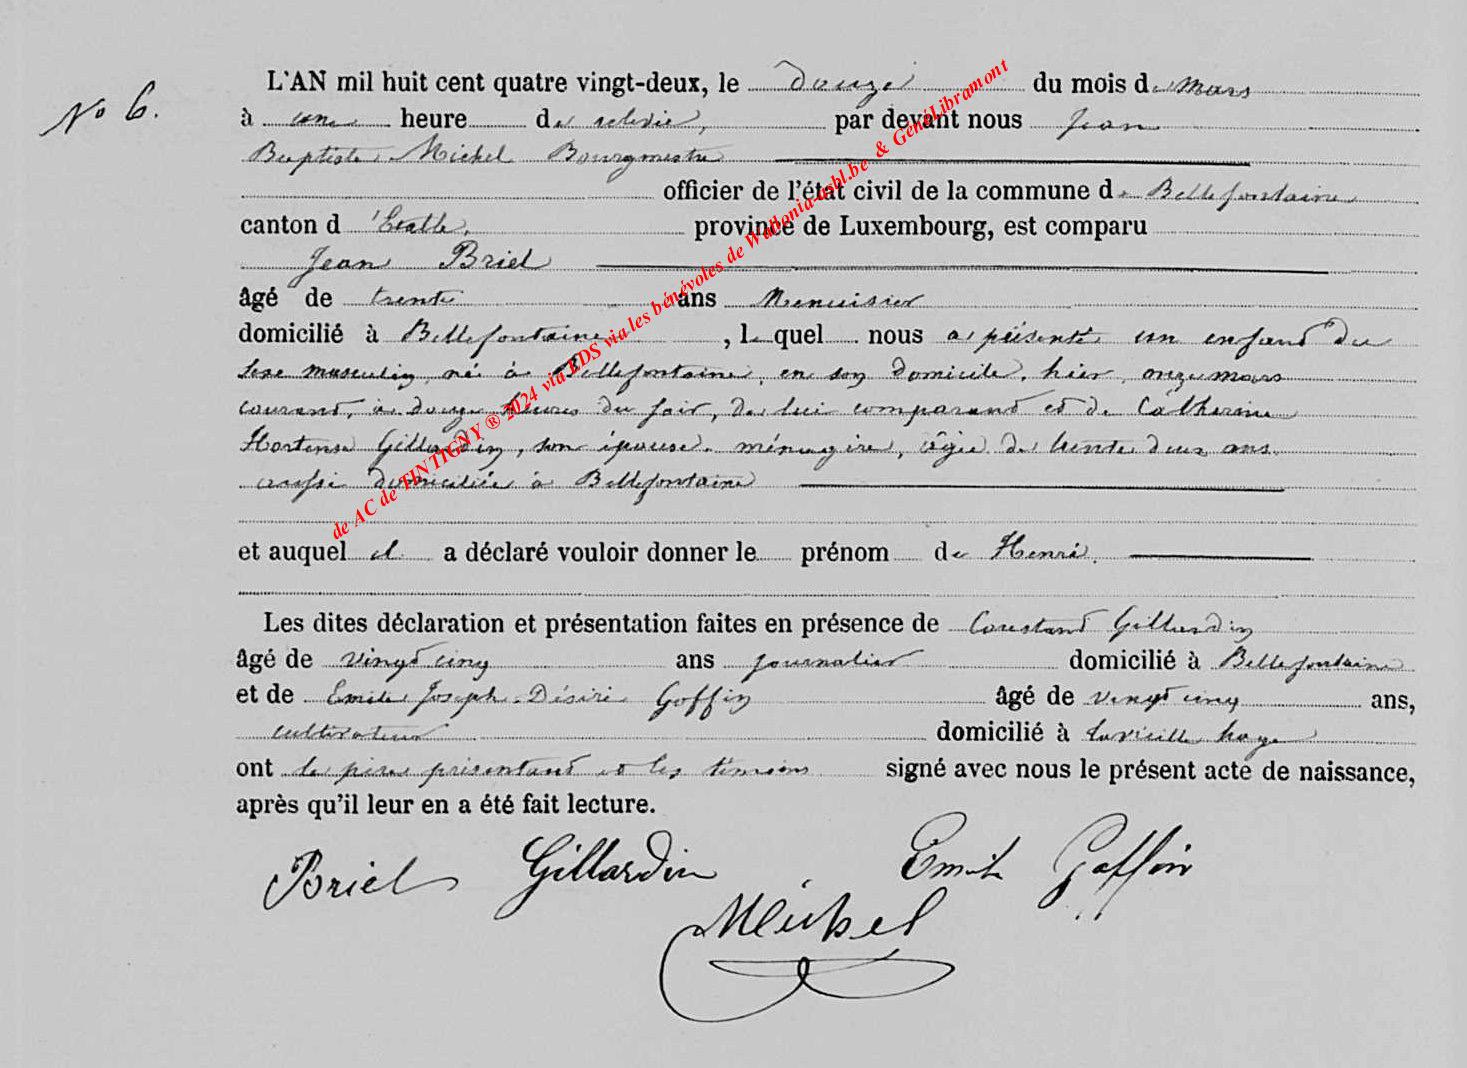 No 6.
L'AN mil huit cent quatre vingt-deux, le douze du mois de Mars
à une heure de relevée, par devant nous Jean
Baptiste Michel Bourgmestre
officier de l'état civil de la commune de Bellefontaine
canton d'Etalle, province de Luxembourg, est comparu
Jean Briel
âgé de trente ans Menuisier
domicilié à Bellefontaine, lequel nous a présenté un enfant du
sexe masculin, né à Bellefontaine, en son domicile, hier, onze mars
courant, à douze heures du soir, de lui comparant et de Catherine
Hortense Gillardin, son épouse, ménagère, âgée de trente deux ans
aussi domiciliée à Bellefontaine
et auquel il a déclaré vouloir donner le prénom de Henri.
Les dites déclaration et présentation faites en présence de Constant Gillardin
âgé de vingt cinq ans journalier domicilié à Bellefontaine
et de Emile Joseph Désiré Goffin âgé de vingt cinq ans,
cultivateur domicilié à Lavieille haye
ont le père présentant et les témoins signé avec nous le présent acte de naissance,
après qu'il leur en a été fait lecture.
Briel Gillardin Emile Goffin
Michel
de AC de TINTIGNY ® 2024 via EDS via les bénévoles de Wallonia-asbl.be & GénéLibramont